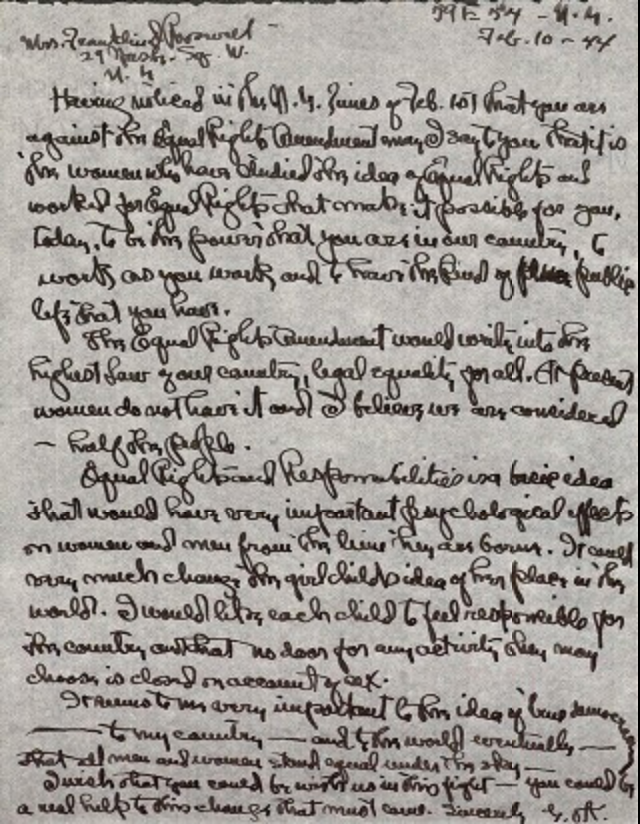 59 E 54 — N.Y.
Feb. 10 — 44
Mrs. Franklin D Roosevelt —
29 Wash. Sq. W.
N.Y.
Having noticed in the N.Y. Times of Feb. 1st that you are
against the Equal Rights Amendment may I say to you that it is
the women who have studied the idea of Equal Rights and
worked for Equal Rights that make it possible for you,
today, to be the power that you are in our country, to
work as you work and to have the kind of public
life that you have.
The Equal Rights Amendment would write into the
highest law of our country, legal equality for all. At present
women do not have it and I believe we are considered
— half the people.
Equal Rights and Responsibilities is a basic idea
that would have very important psychological effects
on women and men from the time they are born. It could
very much change the girl child's idea of her place in the
world. I would like each child to feel responsible for
the country and that no door for any activity they may
choose is closed on account of sex.
It seems to me very important to the idea of true democracy
— to my country — and to the world eventually —
that all men and women stand equal under the sky —
I wish that you could be with us in this fight — you could be
a real help to this change that must come. Sincerely G. O'K.